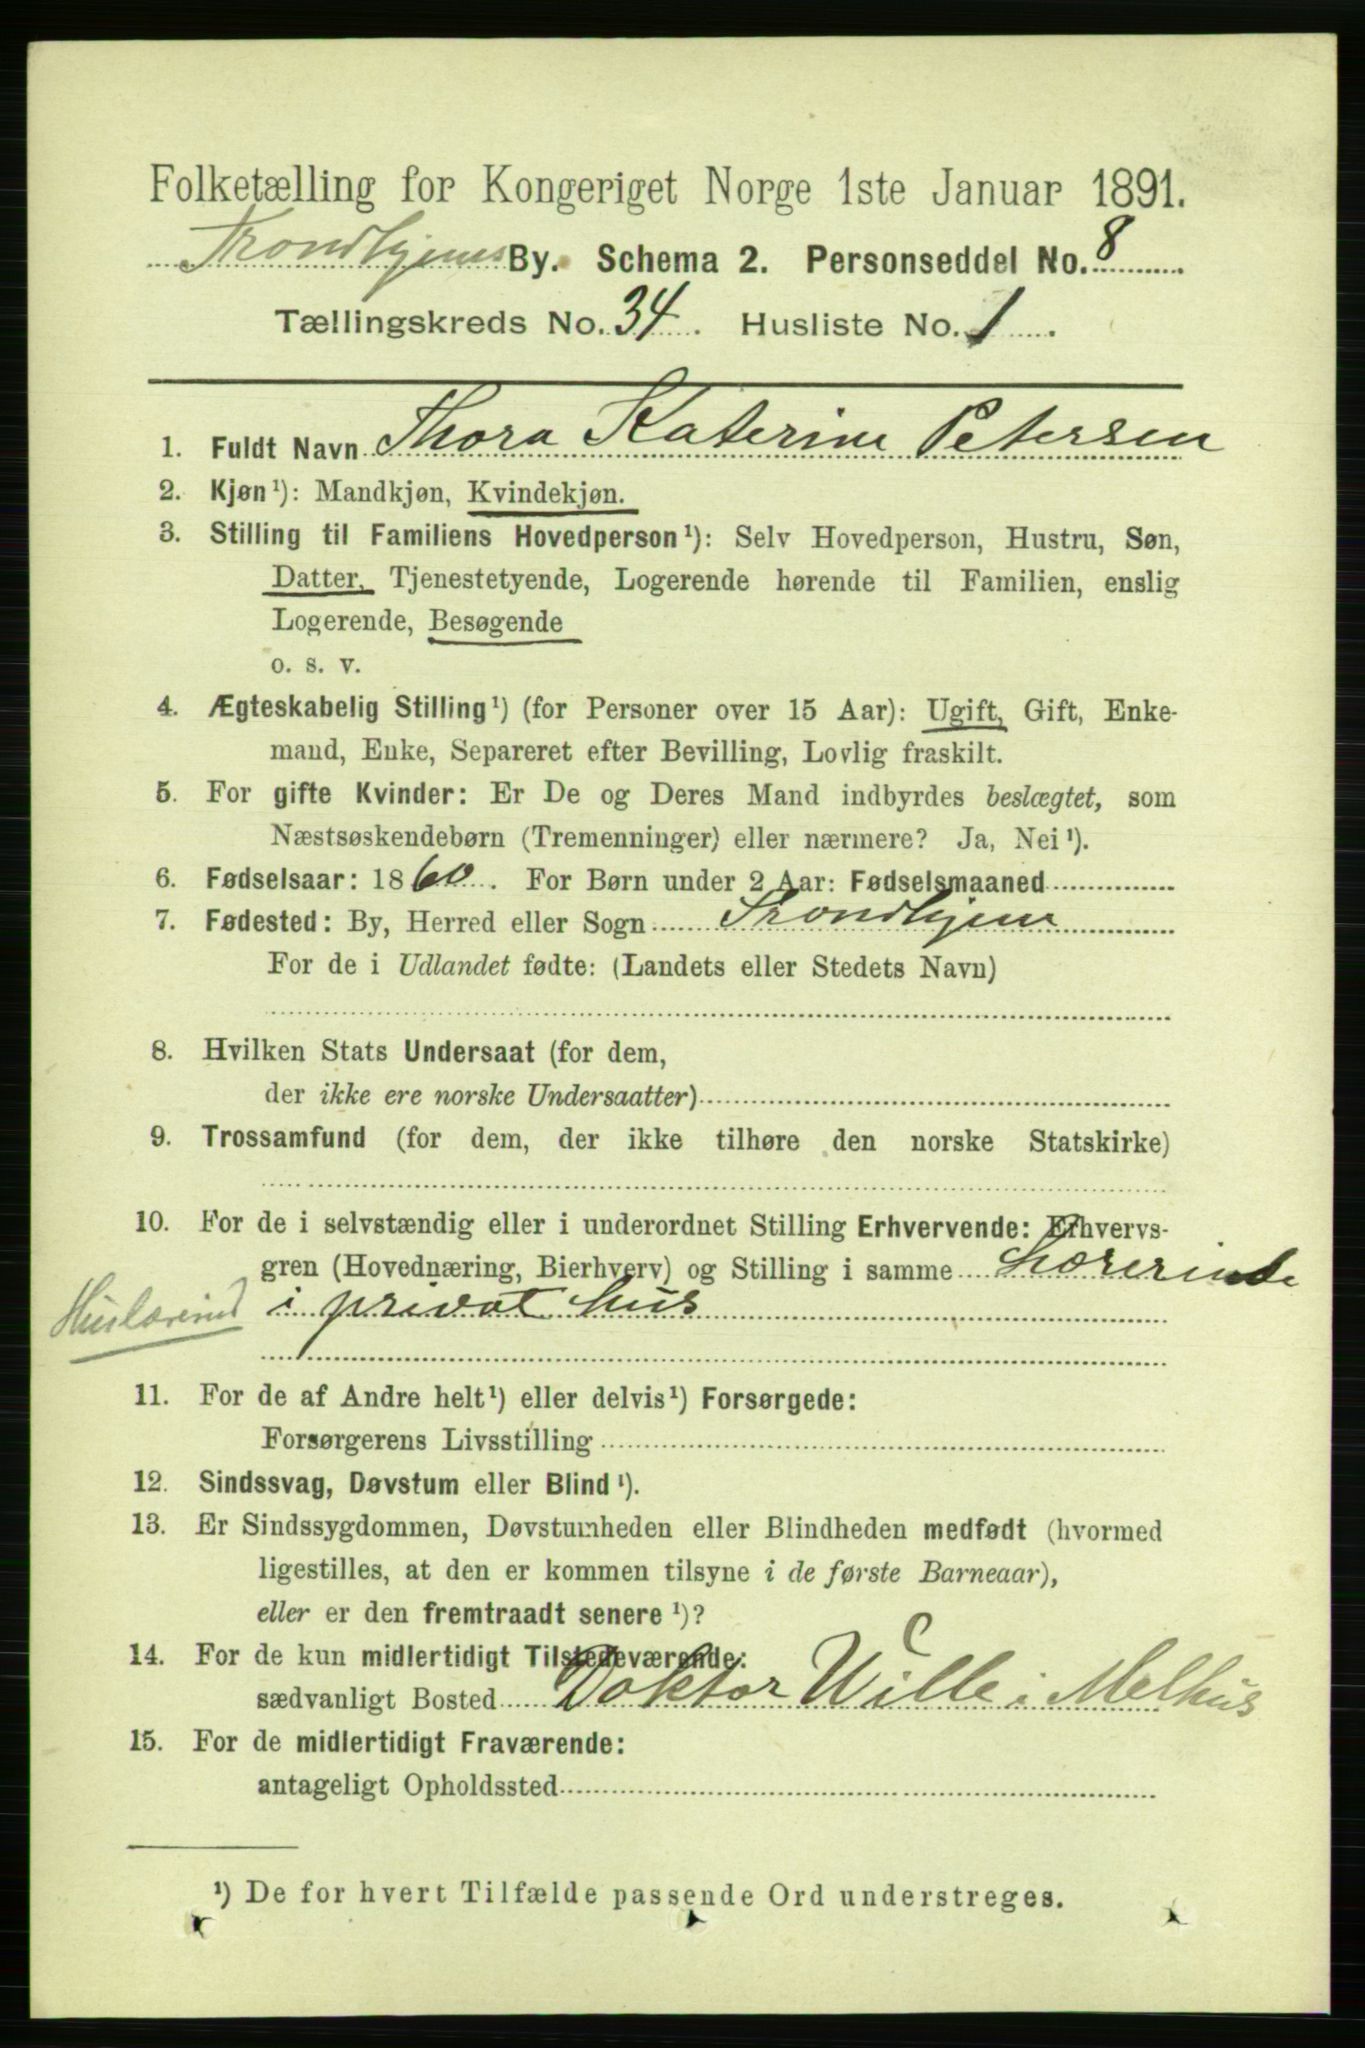 Folketælling for Kongeriget Norge 1ste Januar 1891.
Trondhjems By. Schema 2. Personseddel No. 8
Tællingskreds No. 34. Husliste No. 1.
1. Fuldt Navn Thora Katerine Petersen
2. Kjøn¹): Mandkjøn, Kvindekjøn.
3. Stilling til Familiens Hovedperson¹): Selv Hovedperson, Hustru, Søn,
Datter, Tjenestetyende, Logerende hørende til Familien, enslig
Logerende, Besøgende
o. s. v.
4. Ægteskabelig Stilling¹) (for Personer over 15 Aar): Ugift, Gift, Enke-
mand, Enke, Separeret efter Bevilling, Lovlig fraskilt.
5. For gifte Kvinder: Er De og Deres Mand indbyrdes beslægtet, som
Næstsøskendebørn (Tremenninger) eller nærmere? Ja, Nei¹).
6. Fødselsaar: 1860. For Børn under 2 Aar: Fødselsmaaned
7. Fødested: By, Herred eller Sogn Trondhjem
For de i Udlandet fødte: (Landets eller Stedets Navn)
8. Hvilken Stats Undersaat (for dem,
der ikke ere norske Undersaatter)
9. Trossamfund (for dem, der ikke tilhøre den norske Statskirke)
10. For de i selvstændig eller i underordnet Stilling Erhvervende: Erhvervs-
gren (Hovednæring, Bierhverv) og Stilling i samme Lærerinde
Huslærerind i privat hus
11. For de af Andre helt¹) eller delvis¹) Forsørgede:
Forsørgerens Livsstilling
12. Sindssvag, Døvstum eller Blind¹).
13. Er Sindssygdommen, Døvstumheden eller Blindheden medfødt (hvormed
ligestilles, at den er kommen tilsyne i de første Barneaar),
eller er den fremtraadt senere¹)?
14. For de kun midlertidigt Tilstedeværende:
sædvanligt Bosted Doktor Wille i Melhus
15. For de midlertidigt Fraværende:
antageligt Opholdssted
¹) De for hvert Tilfælde passende Ord understreges.